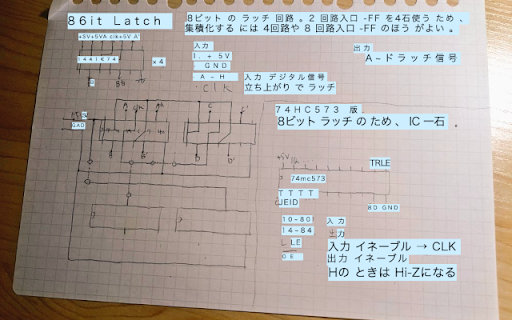 86it Latch
8ビット の ラッチ 回路 。2 回路入口 -FF を4石使う ため 、
集積化する には 4回路や 8 回路入口 -FF のほう がよい 。
+5V+5VA clk+5V A'
x4
入力
1. + 5V
GND
A - H 入力 デジタル信号
CLK 立ち上がり で ラッチ
出力
A-ドラッチ信号
GAD
74HC573 版
8ビット ラッチ の ため 、 IC 一石 。
+5V
TRLE
74mc573
T T T T
JEID
8D GND
10~80I 入 力
14-84 土力
L LE 入力 イネーブル → CLK
OE 出力 イネーブル
Hの ときは Hi-Zになる